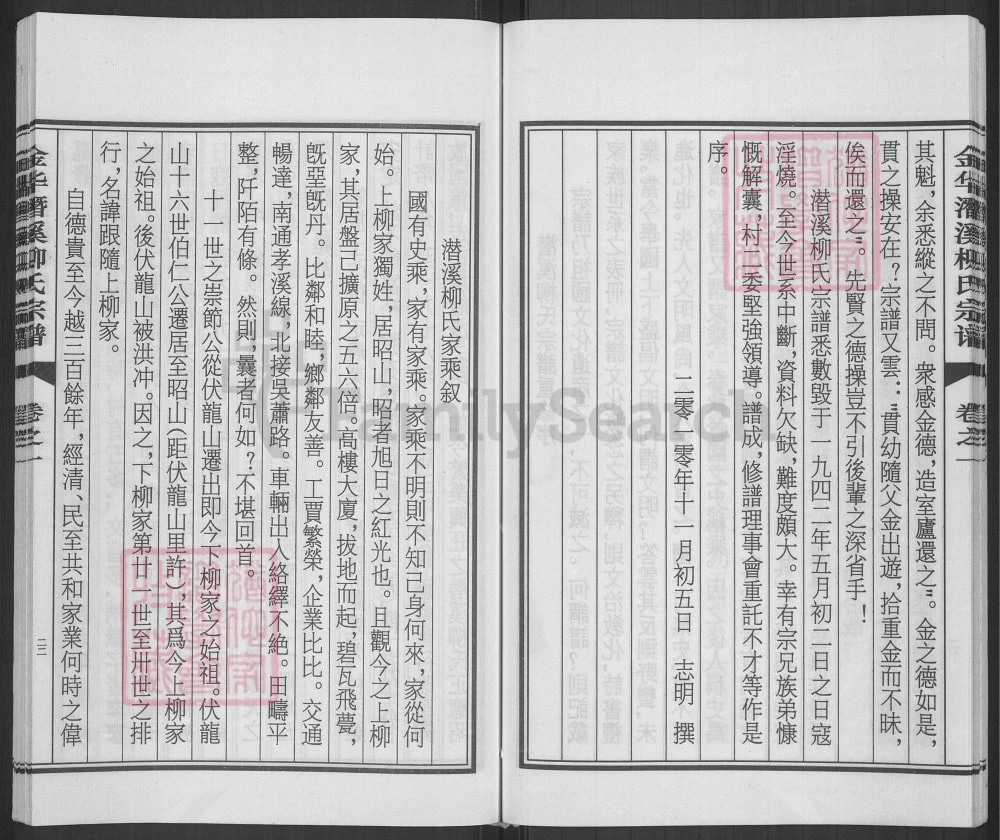 金华潜溪柳氏宗谱
卷之一
其魁，余悉縱之不問。衆感金德，造室廬還之〞。金之德如是，
貫之操安在？宗譜又雲：〝貫幼隨父金出遊，拾重金而不昧，
俟而還之〞。先賢之德操豈不引後輩之深省乎！
潜溪柳氏宗譜悉數毀于一九四二年五月初二日之日寇
淫燒。至今世系中斷，資料欠缺，難度頗大。幸有宗兄族弟慷
慨解囊，村兩委堅強領導。譜成，修譜理事會重託不才等作是
序。
二零零零年十一月初五日 志明 撰
潜溪柳氏家乘叙
國有史乘，家有家乘。家乘不明則不知己身何來，家從何
始。上柳家獨姓，居昭山，昭者旭日之紅光也。且觀今之上柳
家，其居盤己擴原之五六倍。高樓大厦，拔地而起，碧瓦飛甍，
既堊既丹。比鄰和睦，鄉鄰友善。工賈繁榮，企業比比。交通
暢達，南通孝溪線，北接吳蕭路。車輛出入絡繹不絶。田疇平
整，阡陌有條。然則，曩者何如？不堪回首。
十一世之崇節公從伏龍山遷出即今下柳家之始祖。伏龍
山十六世伯仁公遷居至昭山（距伏龍山里許），其爲今上柳家
之始祖。後伏龍山被洪冲。因之，下柳家第廿一世至卅世之排
行，名諱跟隨上柳家。
自德貴至今越三百餘年，經清、民至共和家業何時之偉
金华潛溪柳氏宗譜
卷之一
二三
FamilySearch